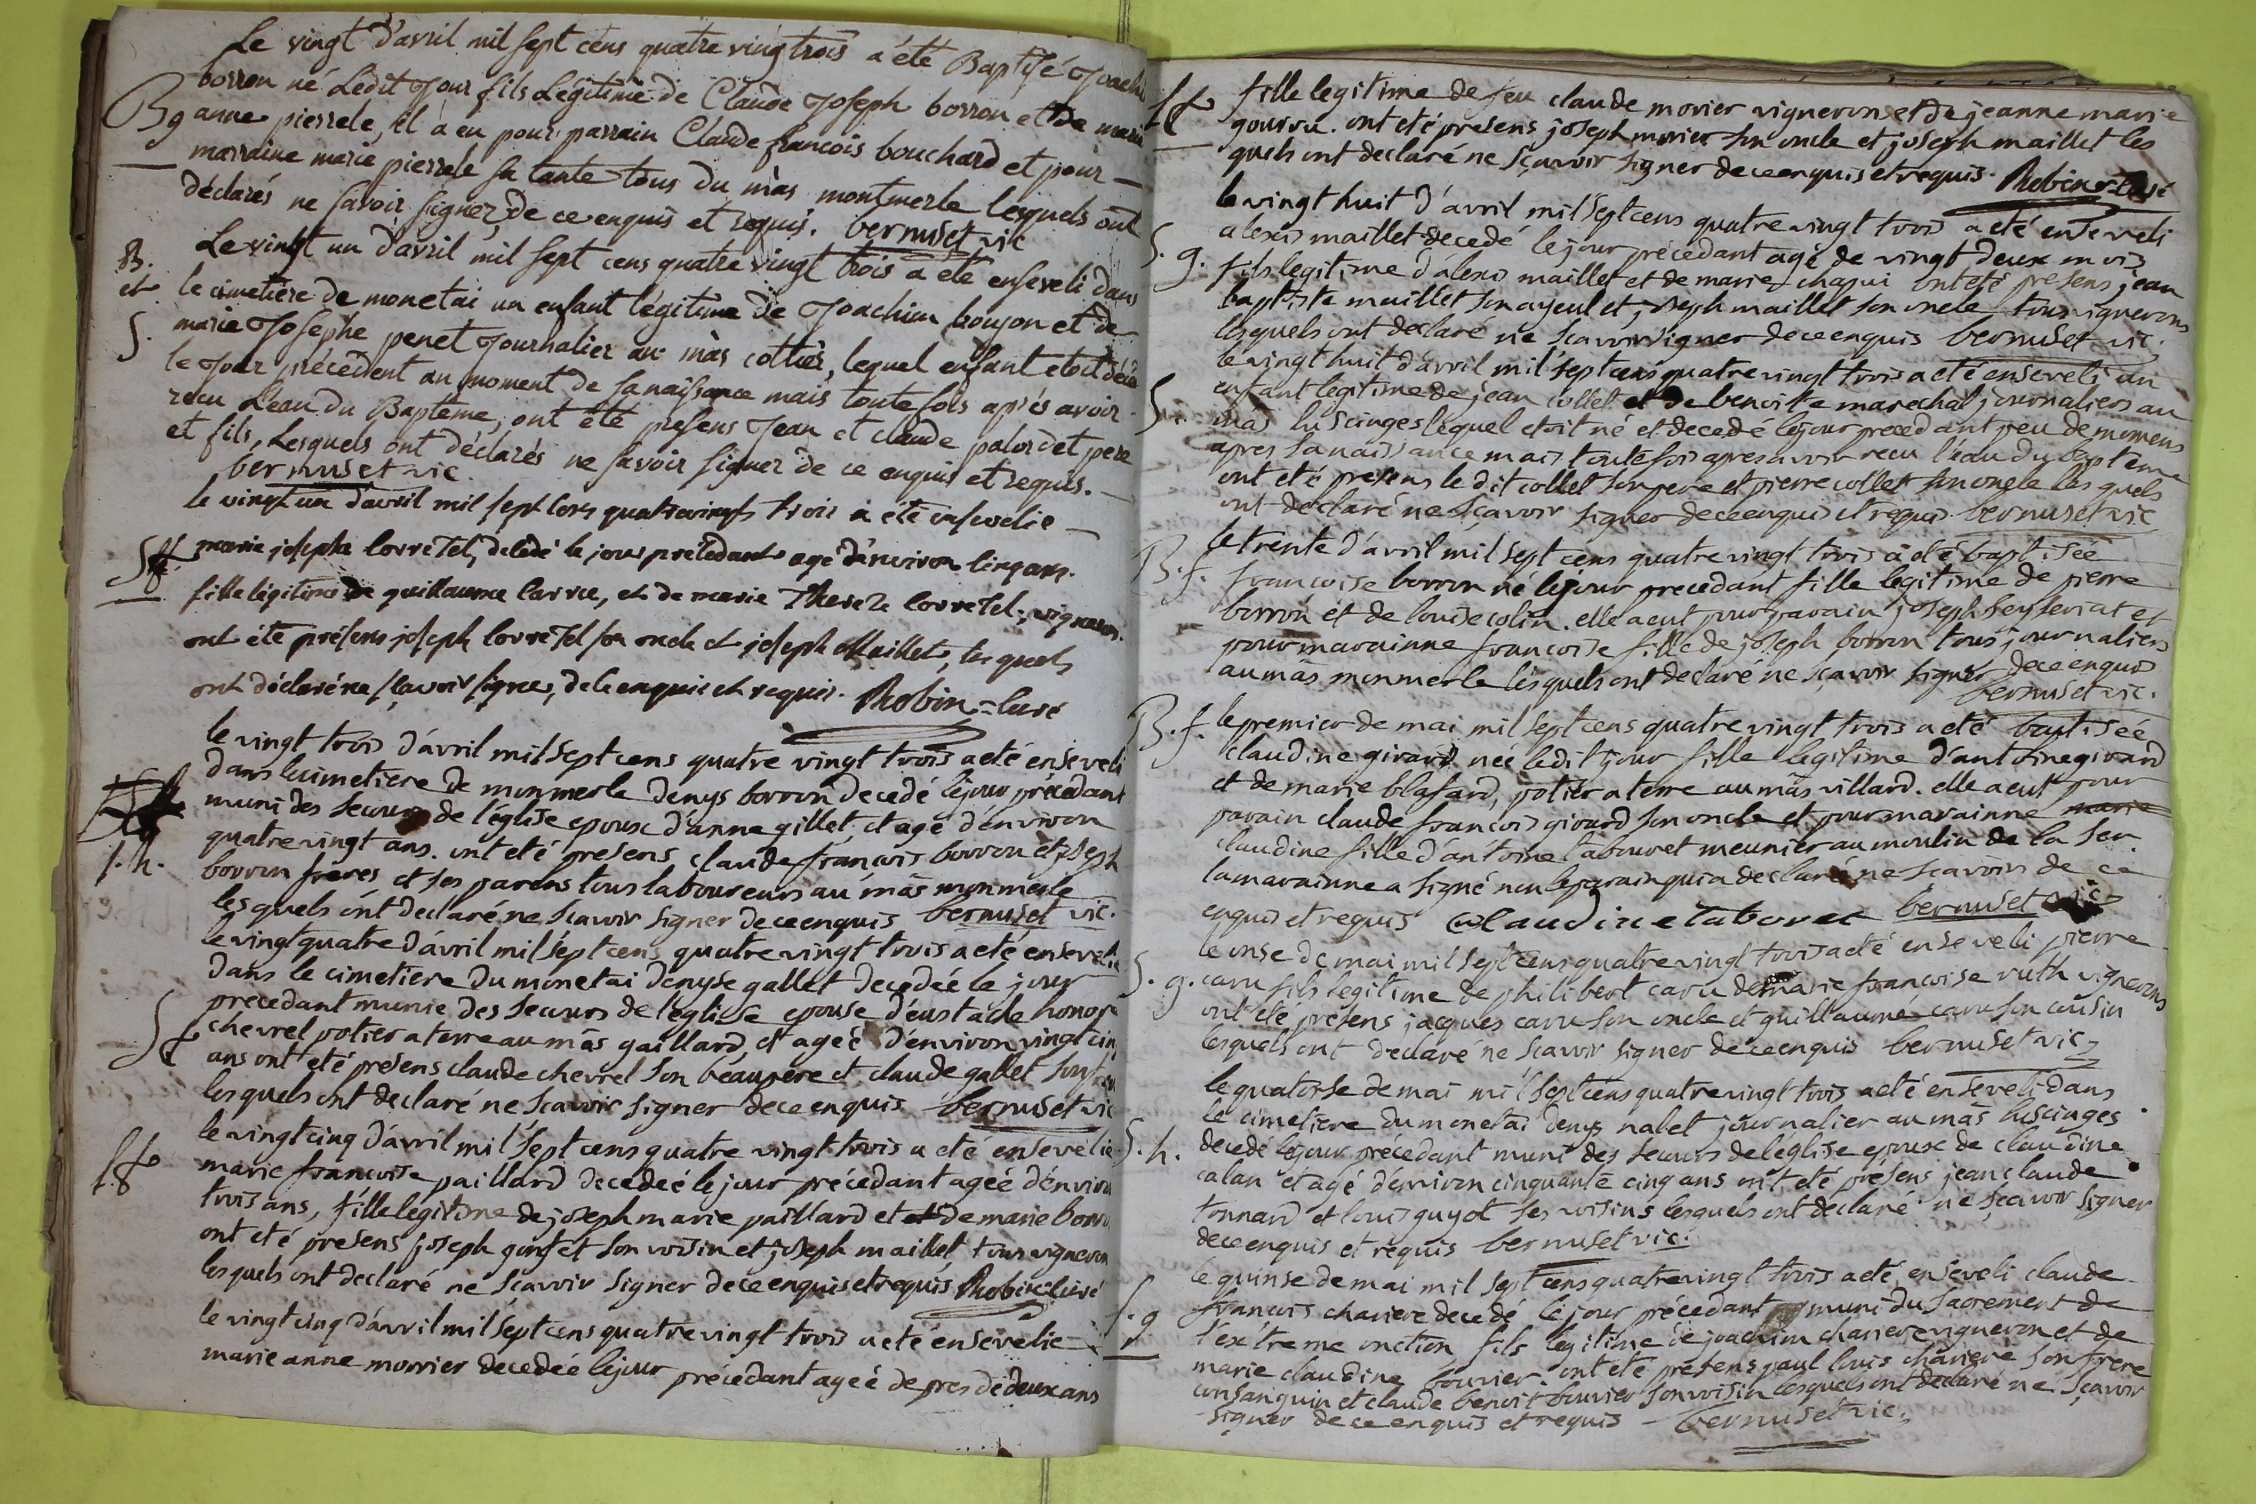 Le vingt d'avril mil sept cens quatre vingtrois a été Baptisé Joachi
borron né Ledit Jour fils Légitime de Claude Joseph borron et de marie
Bg anne pierrele, il a eu pour parrain Claude francois bouchard et pour
marraine marie pierrele sa tante tous du màs montmerle lesquels ont
déclarés ne savoir signer, de ce enquis et requis. bernuset vic
Le vingt un d'avril mil sept cens quatre vingt trois a été enseveli dans
B. et S. le cimetière de monetai un enfant légitime de Joachim boujon et de
marie Josephe penet Journalier au màs cottier, lequel enfant etoit décé
le Jour précèdent au moment de sa naissance mais toute fois après avoir
recu L'eau du Bapteme, ont été presens Jean et claude palordet pere
et fils, Lesquels ont déclarés ne savoir signer de ce enquis et requis.
bernuset vic
le vingt un d'avril mil sept cens quatrevingts trois a été ensevelie
Sf. marie josepha corretel, décédé le jour précédant agé d'environ cinq ans
fille légitime de guillaume carru, et de marie Thereze corretel, vigneron.
ont été présens joseph corretel son oncle et joseph Maillet, lesquels
ont déclaré ne sçavoir signer, de ce enquis et requis. Robin curé
le vingt trois d'avril mil sept cens quatre vingt trois a été enseveli
dans le cimetiere de monmerle denys borron decedé le jour précedant
muni des secours de l'église epoux d'anne gillet et agé denviron
quatre vingt ans. ont eté presens claude françois borron et joseph
S. h. borron freres et ses parens tous laboureurs au mâs monmerle
les quels ont declaré ne scavoir signer de ce enquis bernuset vic.
le vingt quatre d'avril mil sept cens quatre vingt trois a eté ensevelie
dans le cimetiere du monetai denyse gallet decedée le jour
precedant munie des secours de l'eglise epouse d'eustache honoré
Sf chevrel potier a terre au mâs gaillard, et ageé d'environ vingt cinq
ans ont eté presens claude chevrel son beaupere et claude gallet son
les quels ont declaré ne scavoir signer de ce enquis bernuset vic
le vingt cinq d'avril mil sept cens quatre vingt trois a eté ensevelie
Sf marie francoise paillard decedeé le jour précedant ageé d'environ
trois ans, fille legitime de joseph marie paillard et de marie borro
ont eté presens joseph son voisin et joseph maillet tous vigneron
les quels ont declaré ne scavoir signer de ce enquis et requis, Robin curé
le vingt cinq d'avril mil sept cens quatre vingt trois a eté ensevelie
marie anne morrier decedeé le jour précedant ageé de pres de deux ans
Sf fille legitime de feu claude morier vigneron et de jeanne marie
gourru. ont eté presens joseph morier son oncle et joseph maillet les
quels ont declaré ne sçavoir signer de ce enquis et requis. Robin curé
le vingt huit d'avril mil sept cens quatre vingt trois a eté enseveli
alexis maillet decedé le jour précedant agé de vingt deux mois
S. g. fils legitime d'alexis maillet et de marie chapui ont eté presens jean
baptiste maillet son ayeul et joseph maillet son oncle tous vignerons
lesquels ont declaré ne scavoir signer de ce enquis bernuset vic.
le vingt huit d'avril mil sept cens quatre vingt trois a eté enseveli un
enfant legitime de jean collet et de benoite marechal journaliers au
S. mâs luscinges lequel etoit né et decedé le jour precedant peu de momens
apres sa naissance mais toutefois apres avoir recu l'eau du bapteme
ont eté presens le dit collet son pere et pierre collet son oncle les quels
ont declaré ne sçavoir signer de ce enquis et requis bernuset vic
le trente d'avril mil sept cens quatre vingt trois a eté baptisée
B. f. francoise borron né le jour precedant fille legitime de pierre
borron et de louise colin. elle a eut pour parain joseph seyseriat et
pour marainne francoise fille de joseph borron tous journaliers
au mâs monmerle lesquels ont declaré ne scavoir signer de ce enquis
bernuset vic.
B. f. le premier de mai mil sept cens quatre vingt trois a eté baptisée
claudine girard née ledit jour fille legitime d'antoine girard
et de marie blafard, potier a terre au mâs villard. elle a eut pour
parain claude francois girard son oncle et pour marainne marie
claudine fille d'antoine tabouret meunier au moulin de la ser.
la marainne a signé non le parain qui a declaré ne scavoir de ce
enquis et requis Claudine taboret bernuset vic
le onse de mai mil sept cens quatre vingt trois a eté enseveli pierre
S. g. caru fils legitime de philibert caru de marie francoise ruth vignerons
ont eté presens jacques caru son oncle et guillaume caru son cousin
lesquels ont declaré ne scavoir signer de ce enquis bernuset vic
le quatorse de mai mil sept cens quatre vingt trois a eté enseveli dans
le cimetiere du monetai denys nalet journalier au mâs luscinges
S. h. decedé le jour précedant muni des secours de leglise epoux de claudine
calan et agé d'environ cinquante cinq ans ont eté présens jean claude
tonnard et louis guyot ses voisins lesquels ont declaré ne sçavoir signer
de ce enquis et requis bernuset vic.
le quinse de mai mil sept cens quatre vingt trois a eté enseveli claude
S. g françois chariere decedé le jour précedant muni du sacrement de
l'extreme onction fils legitime de joachim chariere vigneron et de
marie claudine bouvier. ont eté présens paul louis chariere son frere
consanguin et claude benoit bouvier son voisin lesquels ont declaré ne sçavoir
signer de ce enquis et requis - bernuset vic.